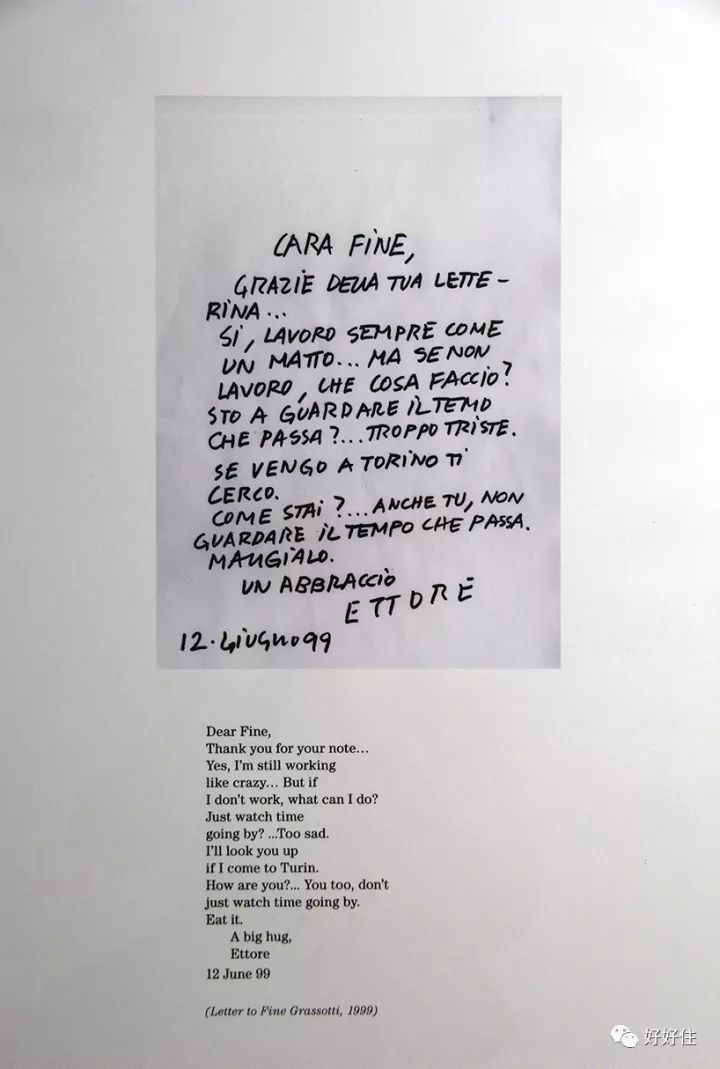 CARA FINE,
GRAZIE DELLA TUA LETTE-
RINA...
SI, LAVORO SEMPRE COME
UN MATTO... MA SE NON
LAVORO, CHE COSA FACCIO?
STO A GUARDARE IL TEMPO
CHE PASSA?... TROPPO TRISTE.
SE VENGO A TORINO TI
CERCO.
COME STAI?... ANCHE TU, NON
GUARDARE IL TEMPO CHE PASSA.
MANGIALO.
UN ABBRACCIO
ETTORE
12. GIUGNO 99
Dear Fine,
Thank you for your note...
Yes, I'm still working
like crazy... But if
I don't work, what can I do?
Just watch time
going by? ...Too sad.
I'll look you up
if I come to Turin.
How are you?... You too, don't
just watch time going by.
Eat it.
A big hug,
Ettore
12 June 99
(Letter to Fine Grassotti, 1999)
好好住